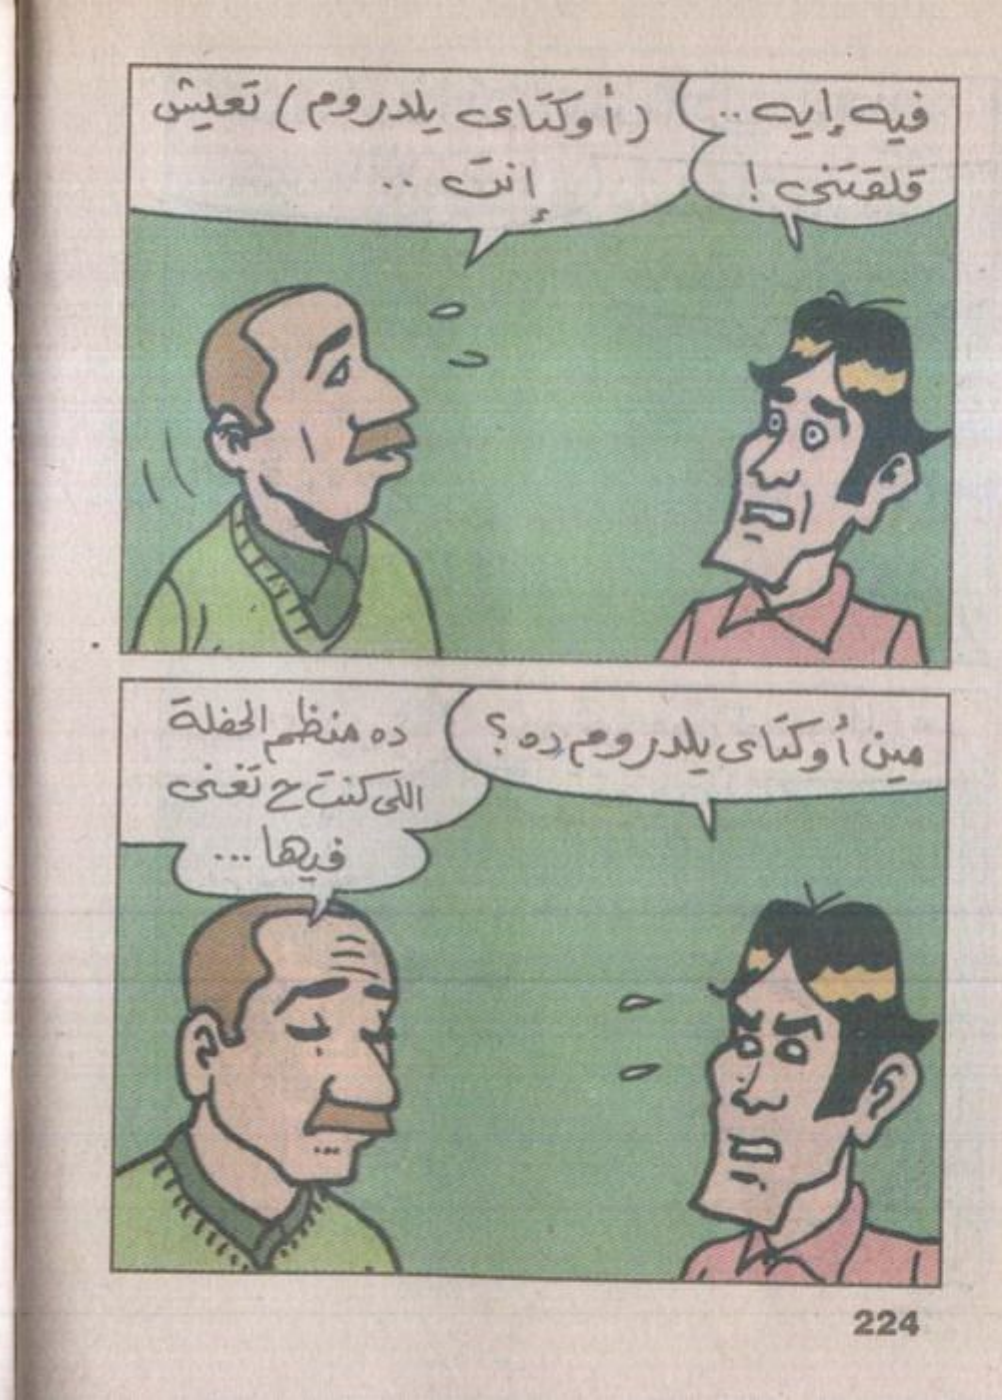 فيه إيه ..
قلقتنى !
(أوكتاى يلدروم) تعيش
إنت ..
مين أوكتاى يلدروم ده ؟
ده منظم الحفلة
اللى كنت ح تغنى
فيها ...
224